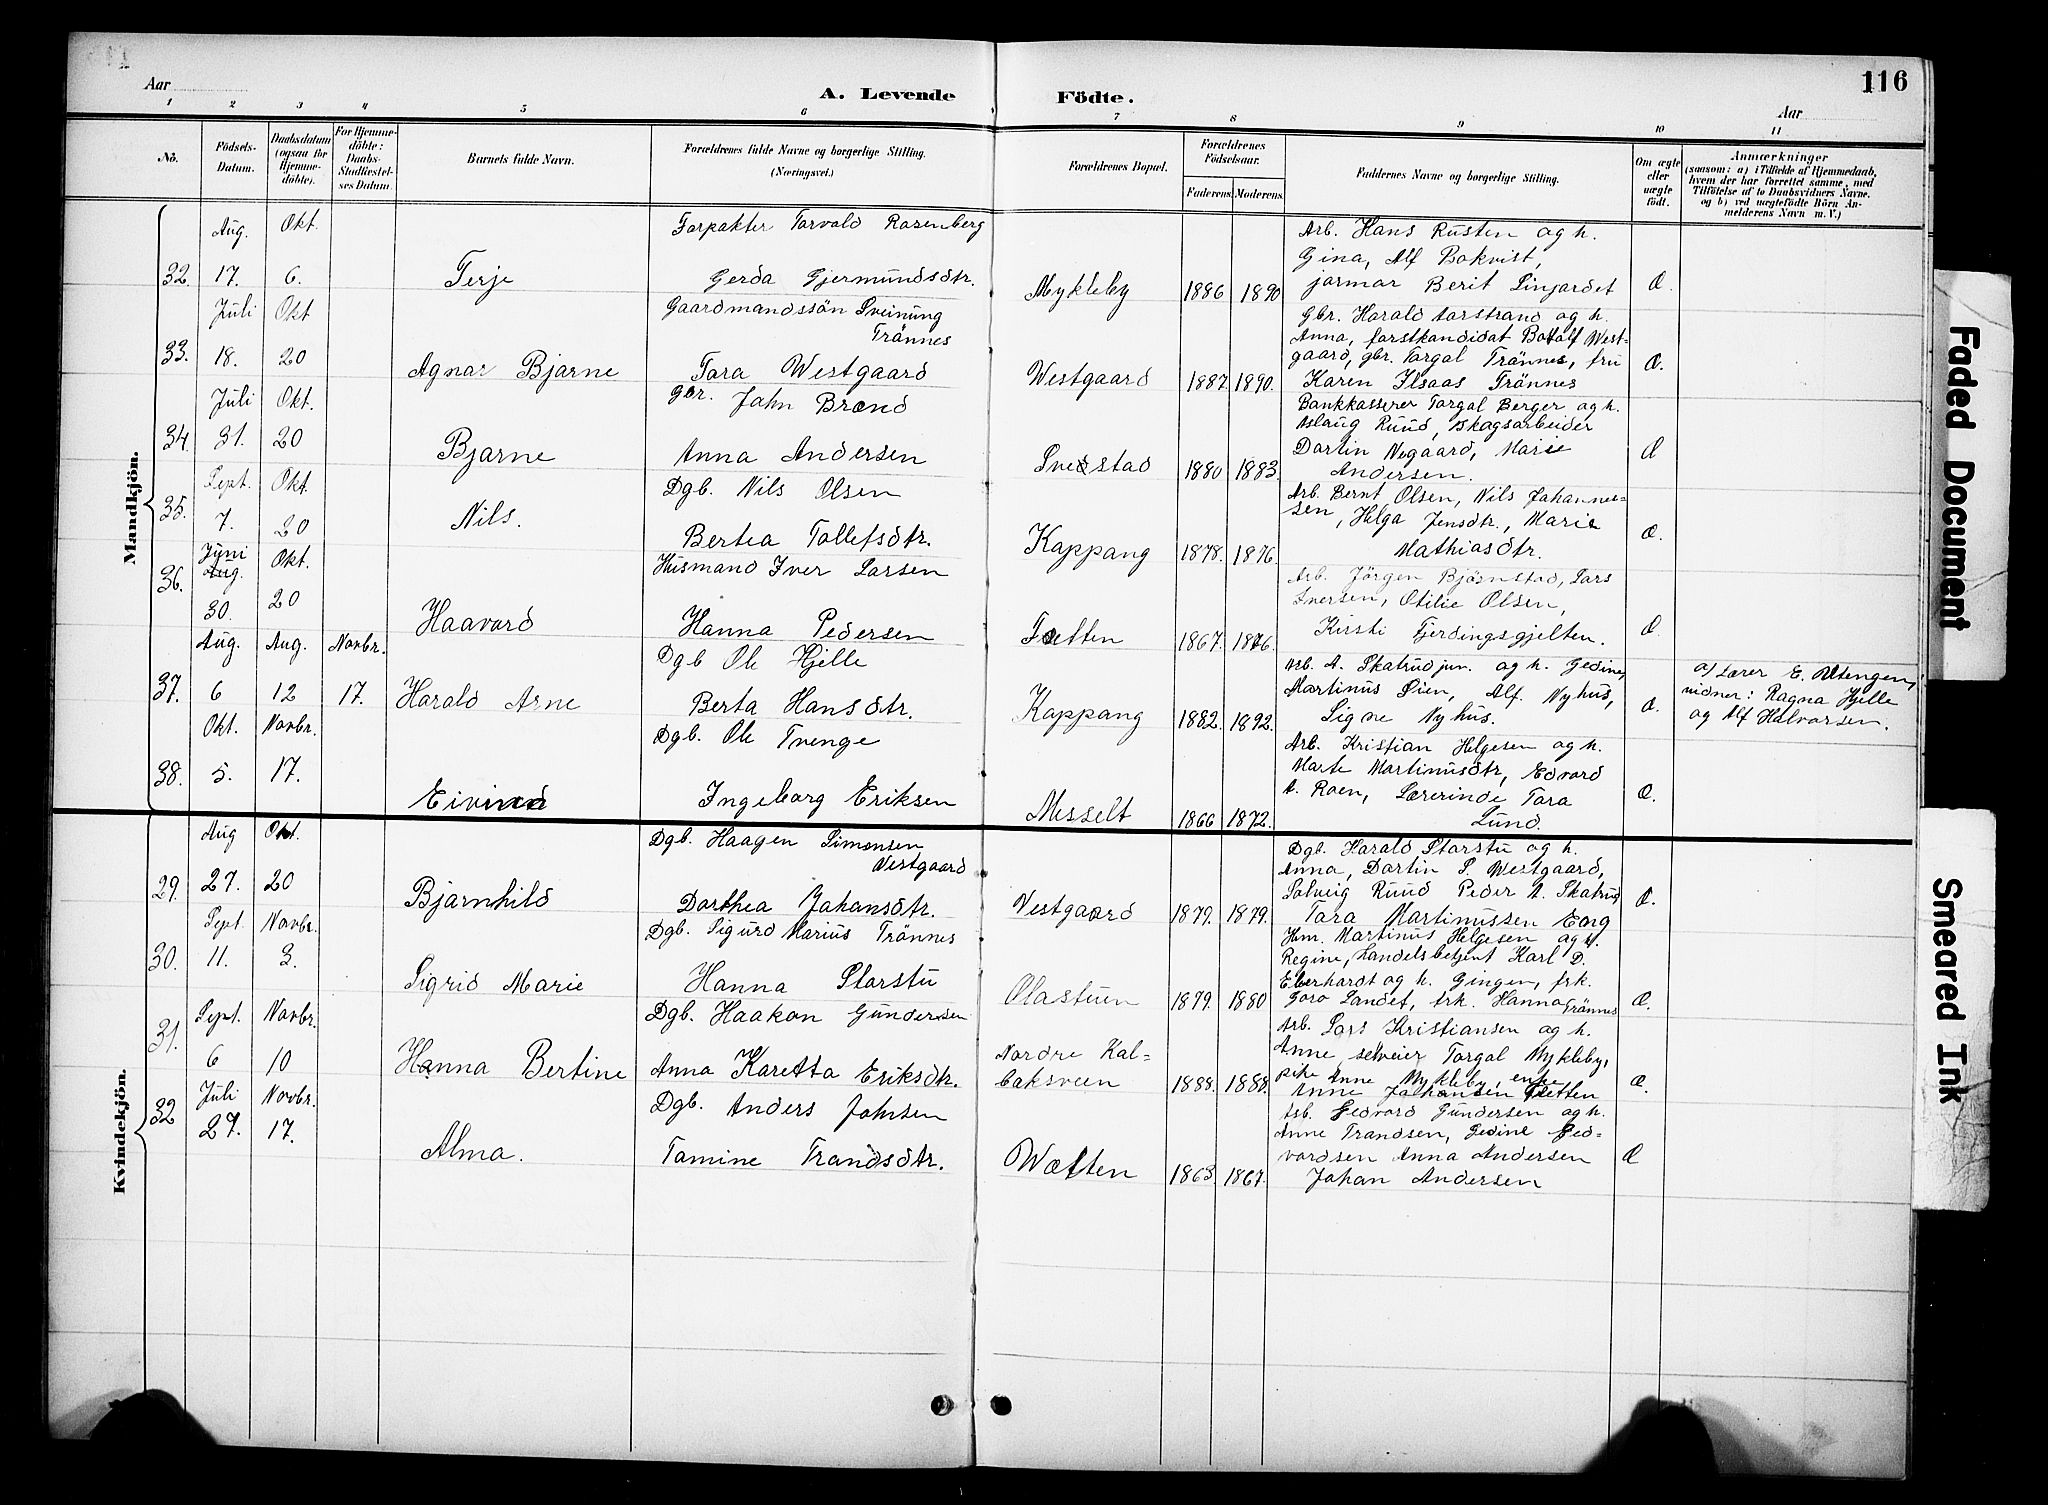 116
Aar
A. Levende Födte.
Aar
1 2 3 4 5 6 7 8 9 10 11
No.
Födsels-Datum.
Daabsdatum (ogsaa for Hjemme-döbte).
For Hjemme-döbte: Daabs-Stadfæstel-ses Datum.
Barnets fulde Navn.
Forældrenes fulde Navne og borgerlige Stilling.
(Næringsvei.)
Forældrenes Bopæl.
Forældrenes Födselsaar.
Faderens Moderens
Faddernes Navne og borgerlige Stilling.
Om ægte eller uægte födt.
Anmærkninger
(saasom: a) i Tilfælde af Hjemmedaab,
hvem der har forrettet samme, med
Tilföielse af to Daabsvidners Navne.
og b) ved uægtefödte Börn An-
melderens Navn m. V.)
Mandkjön.
32. Aug. 17. Okt. 6. Terje
Forpakter Torvald Rosenberg
Gerda Gjermundsdtr.
Mykleby 1886 1890
Arb. Hans Rusten og h.
Gina, Alf Bokvist,
jormor Berit Linjordet
Æ.
33. Juli 18. Okt 20 Agnar Bjarne
Gaardmandssön Sveinung
Trännes
Tora Westgaard
Westgaard 1887 1890.
Gbr. Harald Aorstrand og h.
Anna, forstkandidat Botolf West-
gaard, gbr. Torgal Trännes, fru
Karen Ilsaas Trännes
Æ.
34. Juli 31. Okt. 20 Bjarne
Gbr. John Brænd
Anna Andersen
1880 1883.
Bankkasserer Torgal Berger og h.
Aslaug Ruud, Skogsarbeider
Dortin Negaard, Marie
Andersen.
Æ
35. Sept. 7. Okt. 20 Nils.
Dgb. Nils Olsen
Bertea Tollefsdtr.
Koppang 1878. 1876.
Arb. Bernt Olsen, Nils Johannes-
sen, Helga Jensdtr., Marie
Mathiasdtr.
Æ.
36. Juni Aug. 30. Okt. 20 Haavard
Husmand Iver Larsen
Hanna Pedersen
1867. 1876.
Arb. Jörgen Björnstad, Lars
Iversen, Otilie Olsen,
Kirsti Fjerdingsgjelten.
Æ.
37. Aug. 6 Aug. 12 Novbr. 17. Harald Arne
Dgb Ole Hjelle
Berta Hansdtr.
Koppang 1882. 1892.
Arb. A. Skatrud jun. og h. Gedine,
Martinus Öien, Alf. Nyhus,
Signe Nyhus.
Æ.
a) Lærer E. Utengen,
vidner: Ragna Hjelle
og Alf Halvorsen.
38. Okt. 5. Novbr. 17. Eivind
Dgb. Ole Tvenge
Ingeborg Eriksen
Messelt 1866 1872.
Arb. Kristian Helgesen og h.
Marte Martinusdtr, Edvard
A. Roen, Lærerinde Tora
Lund.
Æ.
Kvindekjön.
29. Aug 27. Okt. 20 Bjarnhild
Dgb. Haagen Simonsen
Vestgaard
Dorthea Johansdtr.
Vestgaard 1879. 1879.
Dgb. Harald Storstu og h.
Anna, Dortin S. Westgaard,
Solveig Ruud Peder A. Skatrud
Tora Martinussen Eng
Æ.
30. Sept. 11. Novbr. 3. Sigrid Marie
Dgb. Sigurd Marius Trönnes
Hanna Storstu
Olastuen 1879. 1880
Hm. Martinus Helgesen og h.
Regine, handelsbetjent Karl D.
Eberhardt og h. Gingen, frk.
Goro Landet, frk. Hanna Trännes
Æ.
31. Sept. 6 Novbr. 10 Hanna Bertine
Dgb. Haakon Gundersen
Anna Karetta Eriksdtr.
Nordre Kol-
baksveen 1888. 1888.
Arb. Lars Kristiansen og h.
Anne, selveier Torgal Mykleby,
pike Anne Mykleby, enke
Anne Johansen Sletten
Æ.
32 Juli 27. Novbr. 17. Alma.
Dgb. Anders Johnsen
Tomine Trondsdtr.
Wætten 1863. 1867.
Arb. Gedvard Gundersen og h.
Anne Trondsen, Gedine Ged-
vardsen Anna Andersen
Johan Andersen
Æ
Faded Document
Smeared Ink